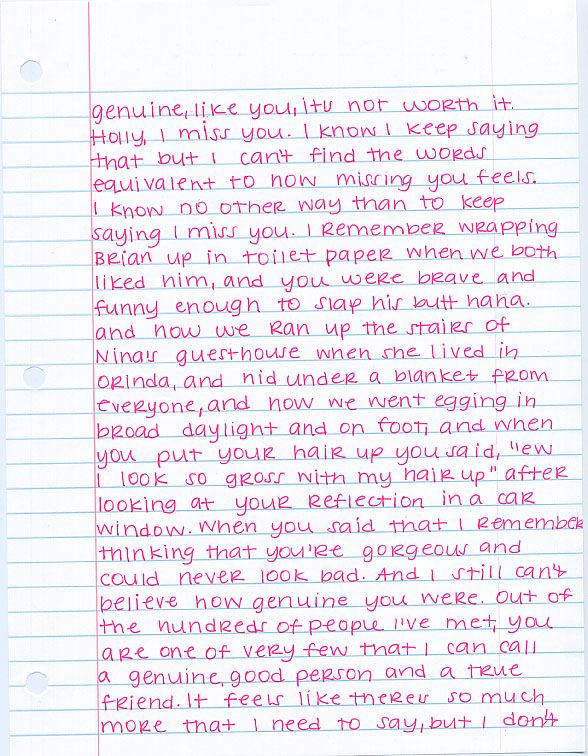 genuine, like you, its not worth it.
Holly, I miss you. I know I keep saying
that but I can't find the words
equivalent to how missing you feels.
I know no other way than to keep
saying I miss you. I remember wrapping
Brian up in toilet paper when we both
liked him, and you were brave and
funny enough to slap his butt haha.
and how we ran up the stairs of
Nina's guesthouse when she lived in
Orinda, and hid under a blanket from
everyone, and how we went egging in
broad daylight and on foot, and when
you put your hair up you said, "ew
I look so gross with my hair up" after
looking at your reflection in a car
window. When you said that I remember
thinking that you're gorgeous and
could never look bad. And I still can't
believe how genuine you were. Out of
the hundreds of people I've met, you
are one of very few that I can call
a genuine, good person and a true
friend. It feels like theres so much
more that I need to say, but I don't